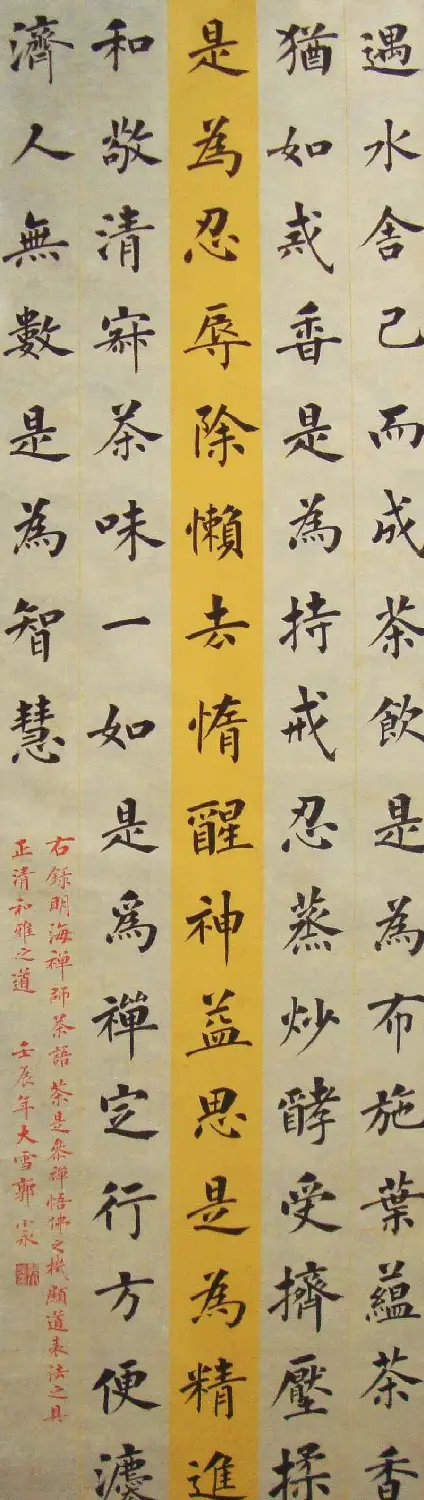 遇水舍己而成茶飲是為布施葉蘊茶香
猶如戒香是為持戒忍蒸炒酵受擠壓揉
是為忍辱除懶去惰醒神益思是為精進
和敬清寂茶味一如是爲禪定行方便
濟人無數是為智慧
右錄明海禪師茶語茶是參禪悟佛之機顯道表法之具
正清和雅之道 壬辰年大雪郭